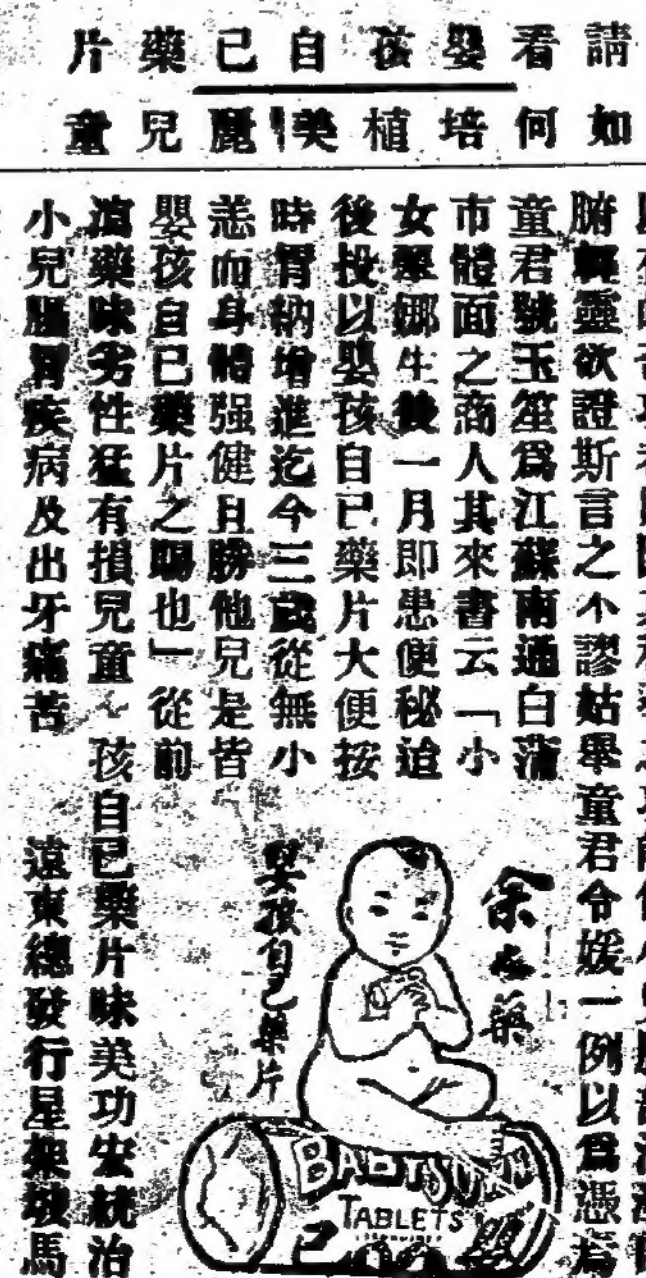 請看嬰孩自己藥片
如何培植美麗兒童
靈欲證斯言之不謬姑舉童君令媛一例以爲憑
童君號玉笙爲江蘇南通白蒲
市體面之商人其來書云「小
女翠娜生後一月即患便秘迨
後投以嬰孩自己藥片大便按
時胃納增進迄今三歲從無小
恙而身體强健且勝他兒是皆
嬰孩自己藥片之賜也」從前
瀉藥味劣性猛有損兒童 孩自己藥片味美功宏統治
小兒腸胃疾病及出牙痛苦 遠東總發行星架坡馬
嬰孩自己藥片
BABY'S OWN
TABLETS